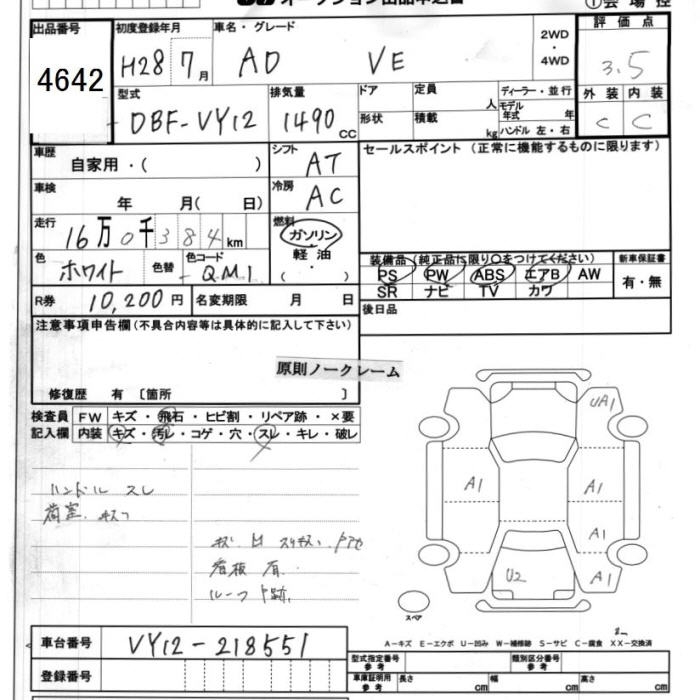 オークション出品申込書
①会場控
出品番号 初度登録年月 車名・グレード 2WD・4WD 評価点
4642 H28 7月 AD VE 3.5
型式 排気量 ドア 定員 人 ディーラー・並行 外装 内装
DBF-VY12 1490 CC 形状 積載 kg モデル年式 年 ハンドル 左・右 C C
車歴 自家用・( ) シフト AT セールスポイント(正常に機能するものに限ります)
車検 年 月( 日) 冷房 AC
走行 16万0千384km 燃料 ガソリン 軽油・( )
色 ホワイト 色替 色コード QM1
装備品(純正品に限り○をつけてください) 新車保証書
PS PW ABS エアB AW 有・無
SR ナビ TV カワ
R券 10,200円 名変期限 月 日 後日品
注意事項申告欄(不具合内容等は具体的に記入して下さい)
原則ノークレーム
修復歴 有〔箇所 〕
検査員 FW キズ・飛石・ヒビ割・リペア跡・×要
記入欄 内装 キズ・汚レ・コゲ・穴・スレ・キレ・破レ
ハンドル スレ
荷室
看板 有
ルーフ 跡
UA1
A1 A1
A1
U2 A1
スペア
A-キズ E-エクボ U-凹み W-補修跡 S-サビ C-腐食 XX-交換済
車台番号 VY12-218551 型式指定番号 参考 類別区分番号 参考
登録番号 車庫証明用 参考 長さ cm 幅 cm 高さ cm